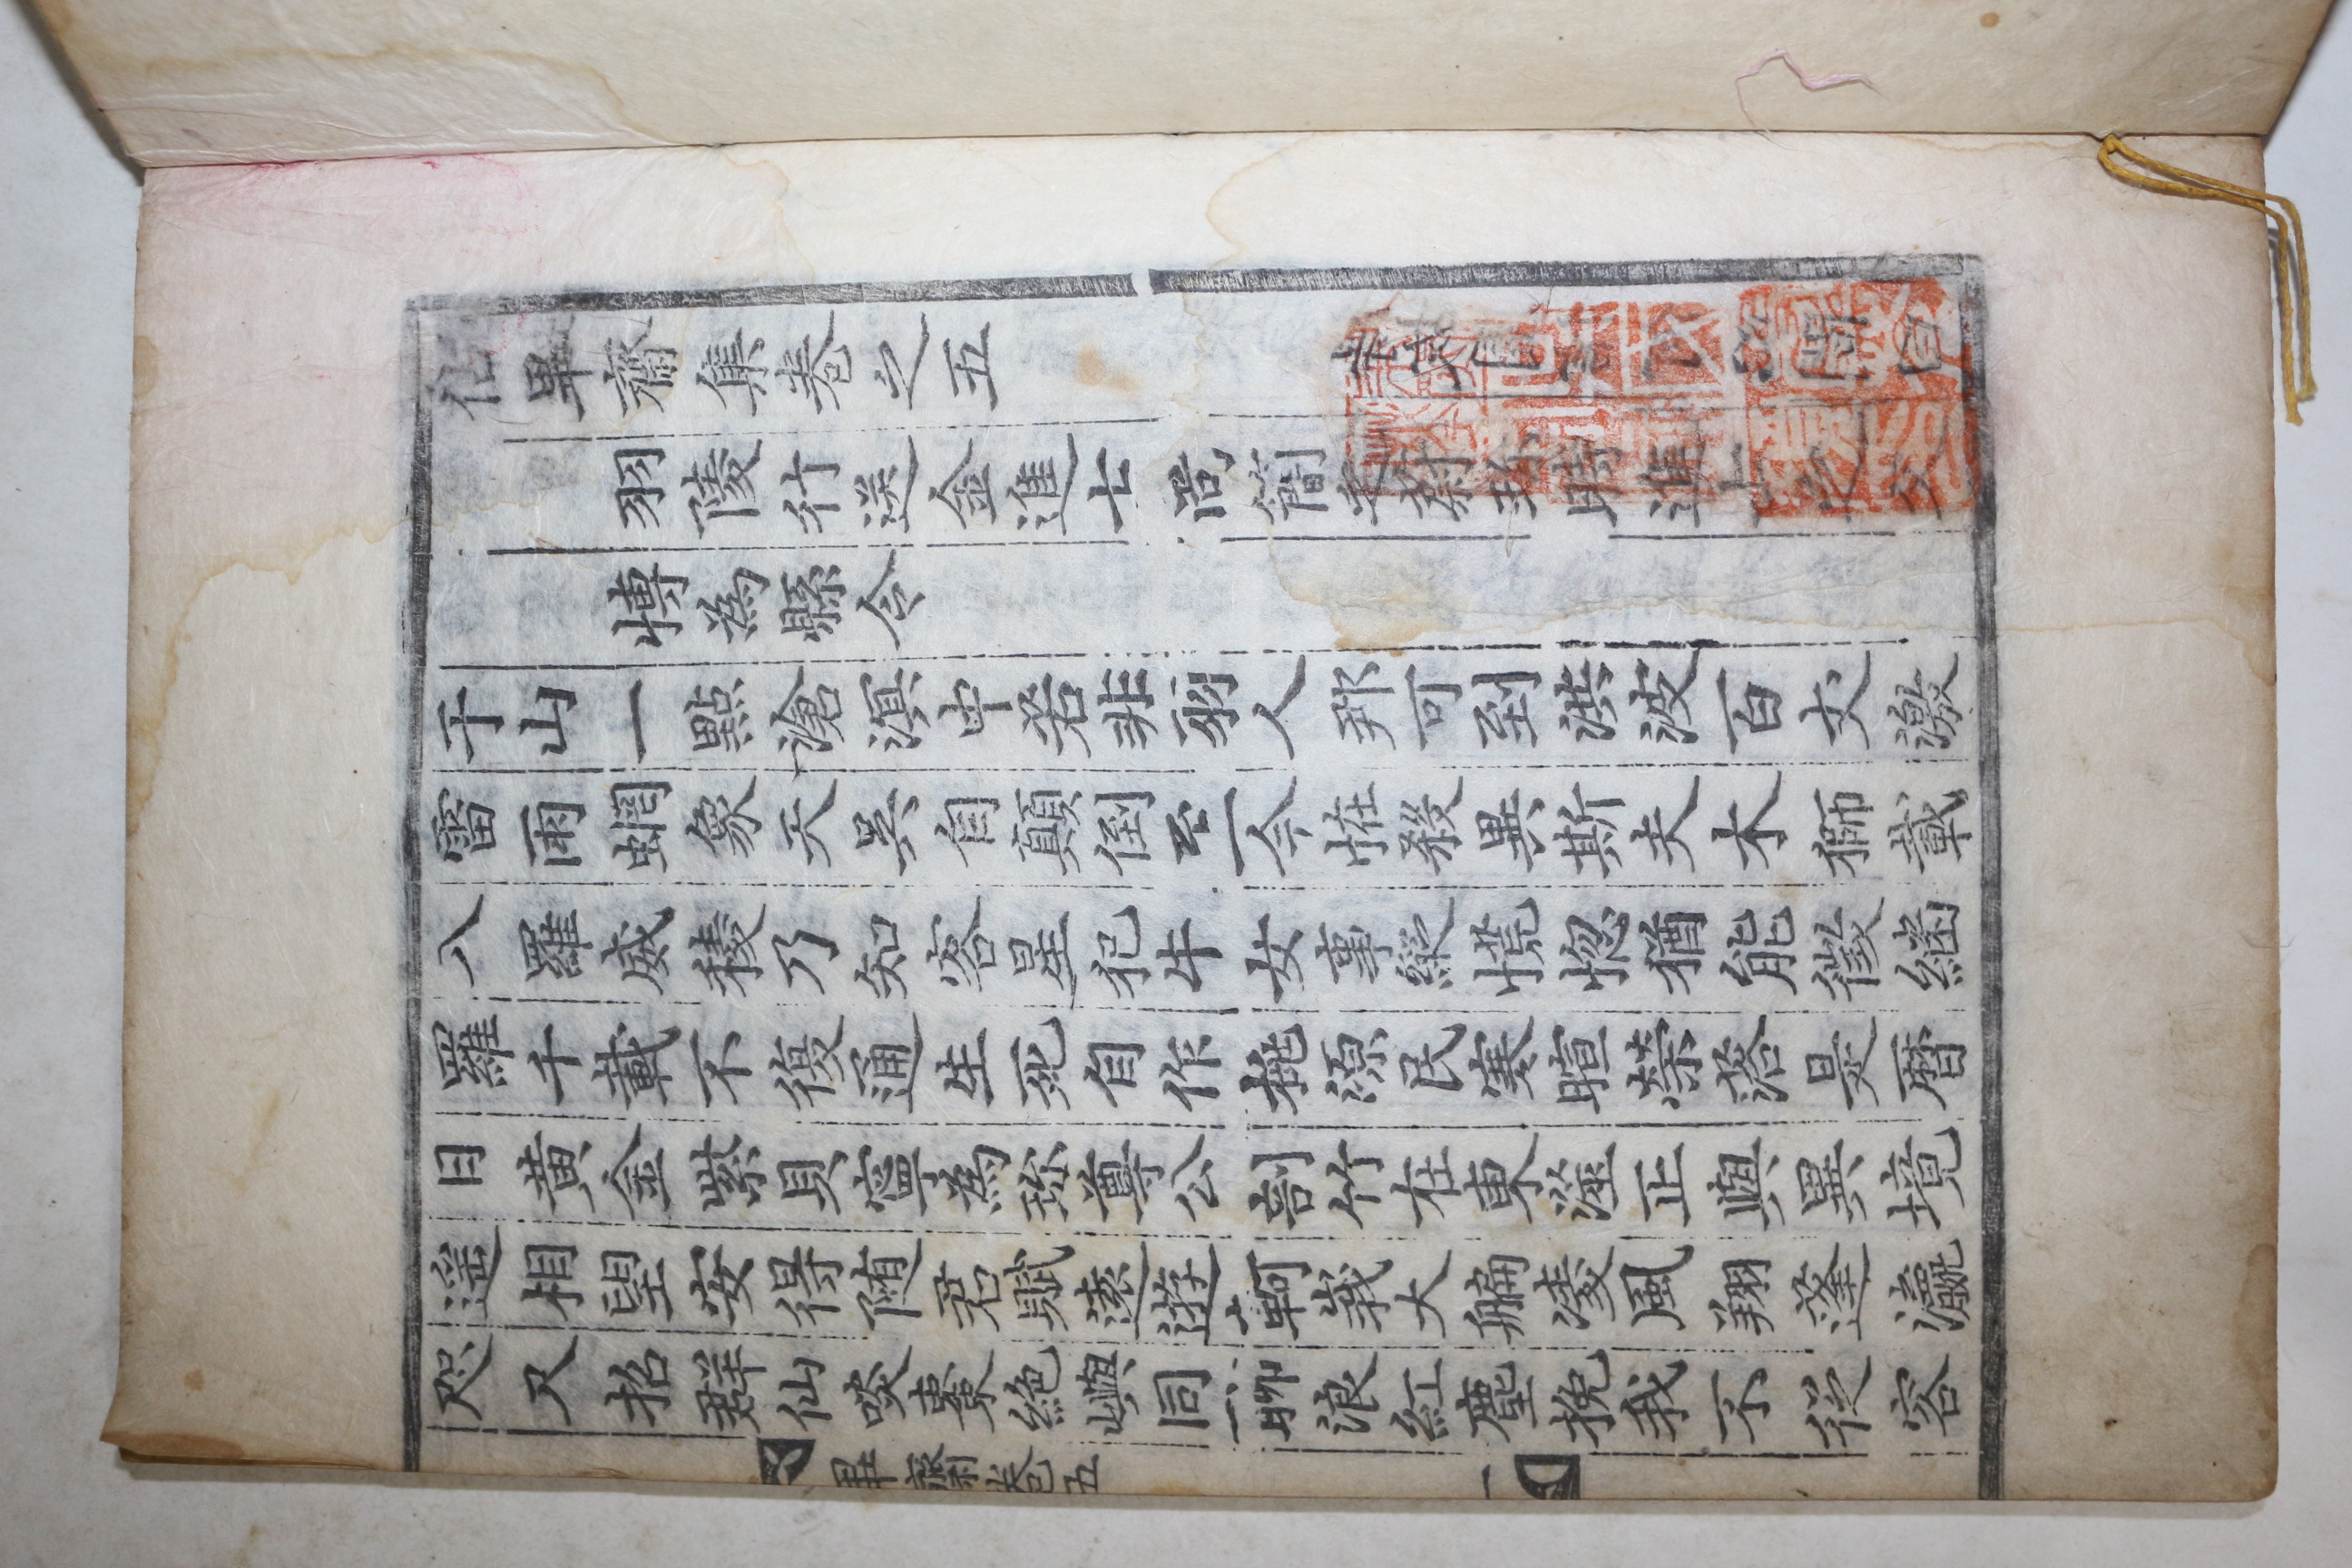 佔畢齋集卷之五
羽陵行送金進士尚簡之蔚珎時進士之父
愽為縣令
于山一點滄溟中若非羽人那可到洪波百丈激
雷雨蜩象天吳自顛倒至今恠殺異斯夫木獅載
八羅威稜乃知客星犯牛女事縱慌惚猶能徵緬
羅千載不復通生死自作桃源民寒暄榮落是曆
日黃金紫貝寧為珎尊公剖竹在東滋正與異境
遥相望安得随君賦遠遊軻峩大艑凌風翔蓬瀛
咫尺招群仙啖棗絶嶼同聊浪紅塵挽我不從容
畢齋卷五
一